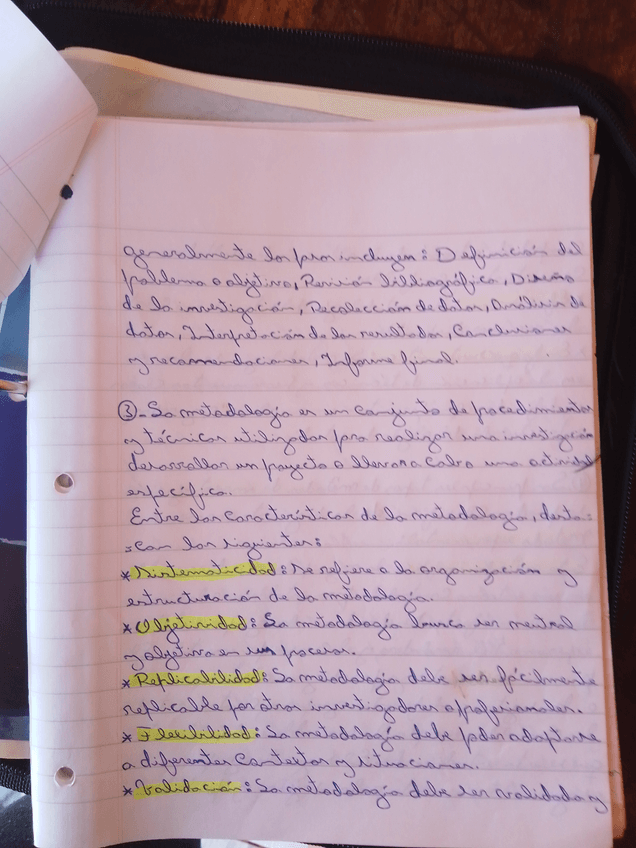 generalmente los pasos incluyen: Definición del
problema o objetivo, Revisión bibliográfica, Diseño
de la investigación, Recolección de datos, Análisis de
datos, Interpretación de los resultados, Conclusiones
y recomendaciones, Informe final.
③- La metodología es un conjunto de procedimientos
y técnicas utilizadas para realizar una investigación
desarrollar un proyecto o llevar a cabo una actividad
específica.
Entre las características de la metodología, desta-
-can las siguientes:
* Sistematicidad: Se refiere a la organización y
estructuración de la metodología.
* Objetividad: La metodología busca ser neutral
y objetiva en su proceso.
* Replicabilidad: La metodología debe ser fácilmente
replicable por otros investigadores o profesionales.
* Flexibilidad: La metodología debe poder adaptarse
a diferentes contextos y situaciones.
* Validación: La metodología debe ser validada y